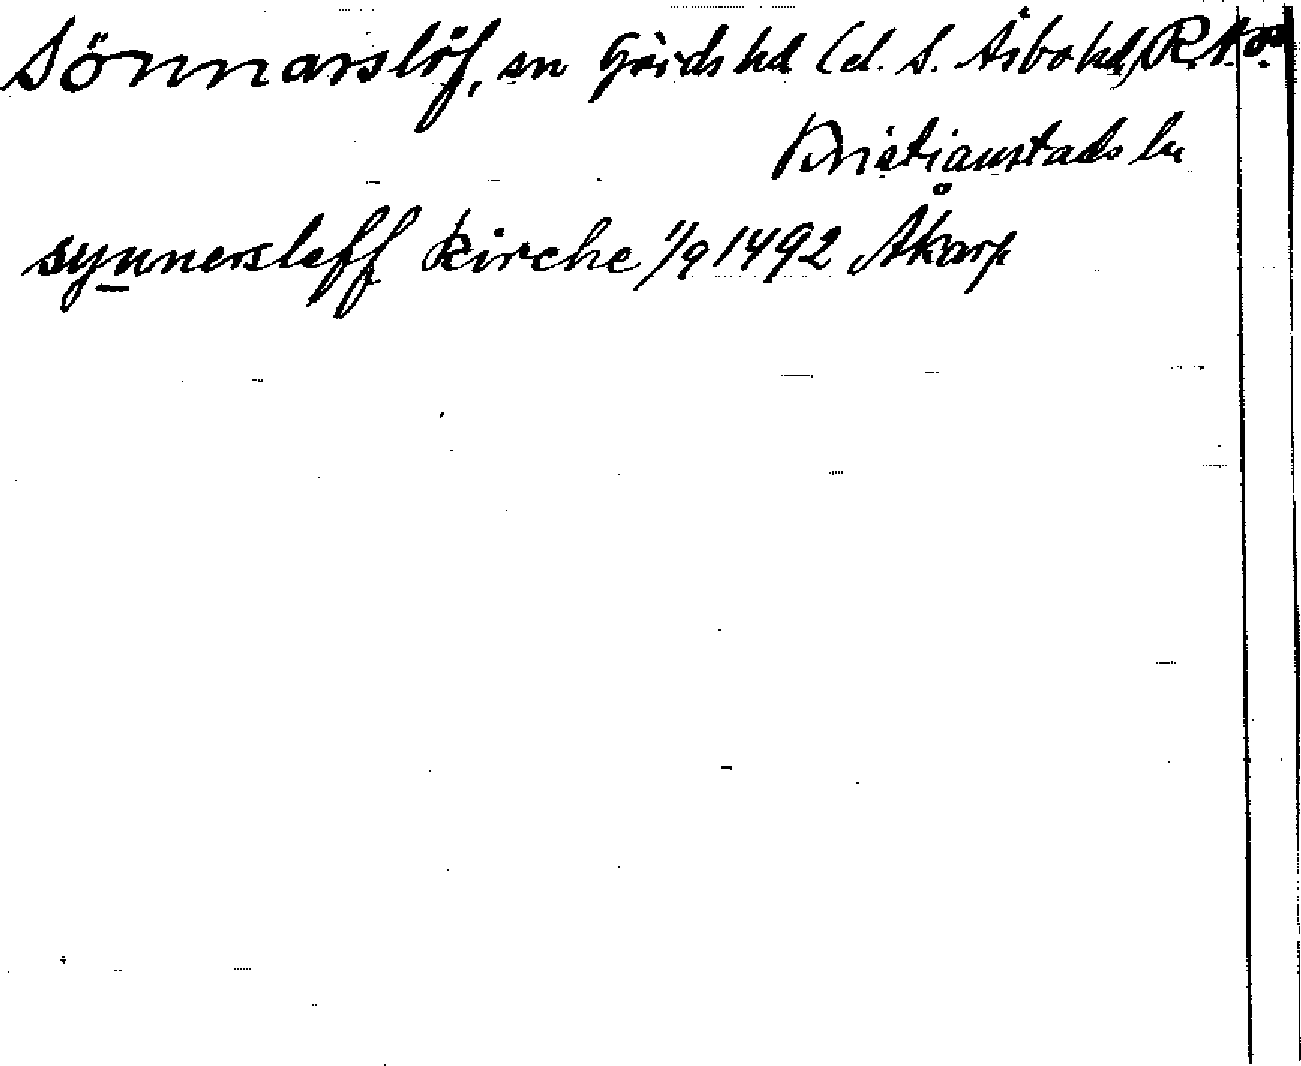 Sönnarslöf, sn Gärds hd (el. S. Åsbo hd)
Kristianstads län
synnersleff kirche 1/9 1492 Åkarp